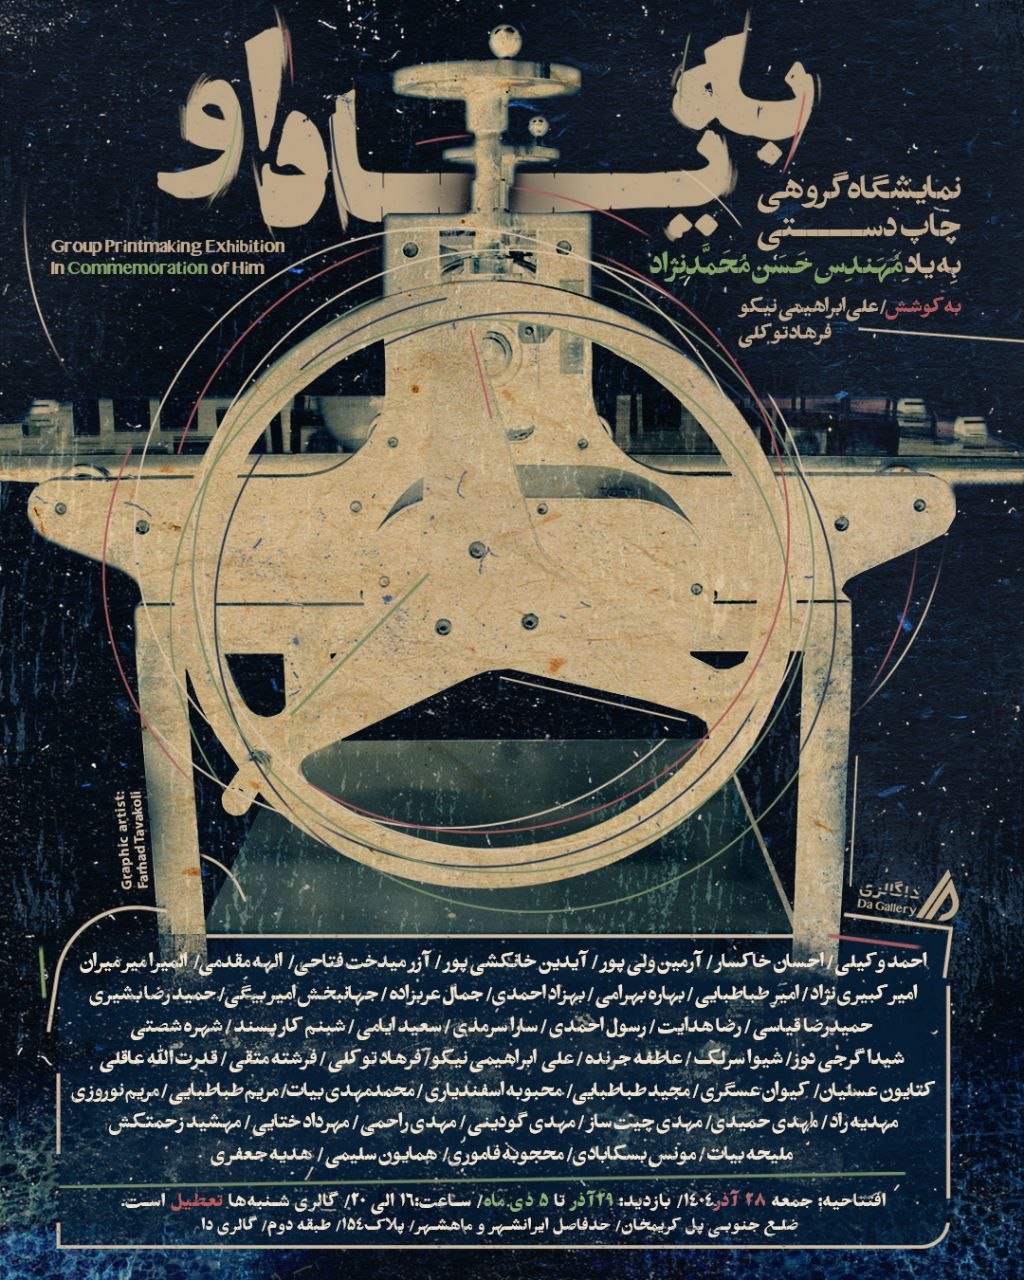 به یاد او
نمایشگاه گروهی
چاپ دستی
به یادِ مُهَندِس حَسَن مُحَمَّدنِژاد
به کوشش/علی ابراهیمی نیکو
فرهاد توکلی
Group Printmaking Exhibition
In Commemoration of Him
Graphic artist:
Farhad Tavakoli
دا گالری
Da Gallery
احمد وکیلی/ احسان خاکسار/ آرمین ولی پور/ آیدین خانکشی پور/ آزرمیدخت فتاحی/ الهه مقدمی/ المیرا میرمیران
امیر کبیری نژاد/ امیر طباطبایی/ بهاره بهرامی/ بهزاد احمدی/ جمال عربزاده/ جهانبخش امیربیگی/ حمیدرضا بشیری
حمیدرضا قیاسی/ رضا هدایت/ رسول احمدی/ سارا سرمدی/ سعید ایامی/ شبنم کارپسند/ شهره شصتی
شیدا گرجی دوز/ شیوا سرلک/ عاطفه جرنده/ علی ابراهیمی نیکو/ فرهاد توکلی/ فرشته متقی/ قدرت الله عاقلی
کتایون عسلیان/ کیوان عسگری/ مجید طباطبایی/ محبوبه اسفندیاری/ محمدمهدی بیات/ مریم طباطبایی/ مریم نوروزی
مهدیه راد/ مهدی حمیدی/ مهدی چیت ساز/ مهدی گودینی/ مهدی راحمی/ مهرداد ختایی/ مهشید زحمتکش
ملیحه بیات/ مونس بسکابادی/ محجوبه فاموری/ همایون سلیمی/ هدیه جعفری
افتتاحیه: جمعه ۲۸ آذر۱۴۰۴/ بازدید: ۲۹آذر تا ۵ دی ماه/ ساعت:۱۶ الی ۲۰/ گالری شنبه‌ها تعطیل است.
ضلع جنوبی پل کریمخان/ حدفاصل ایرانشهر و ماهشهر/ پلاک۱۵۴/ طبقه دوم/ گالری دا